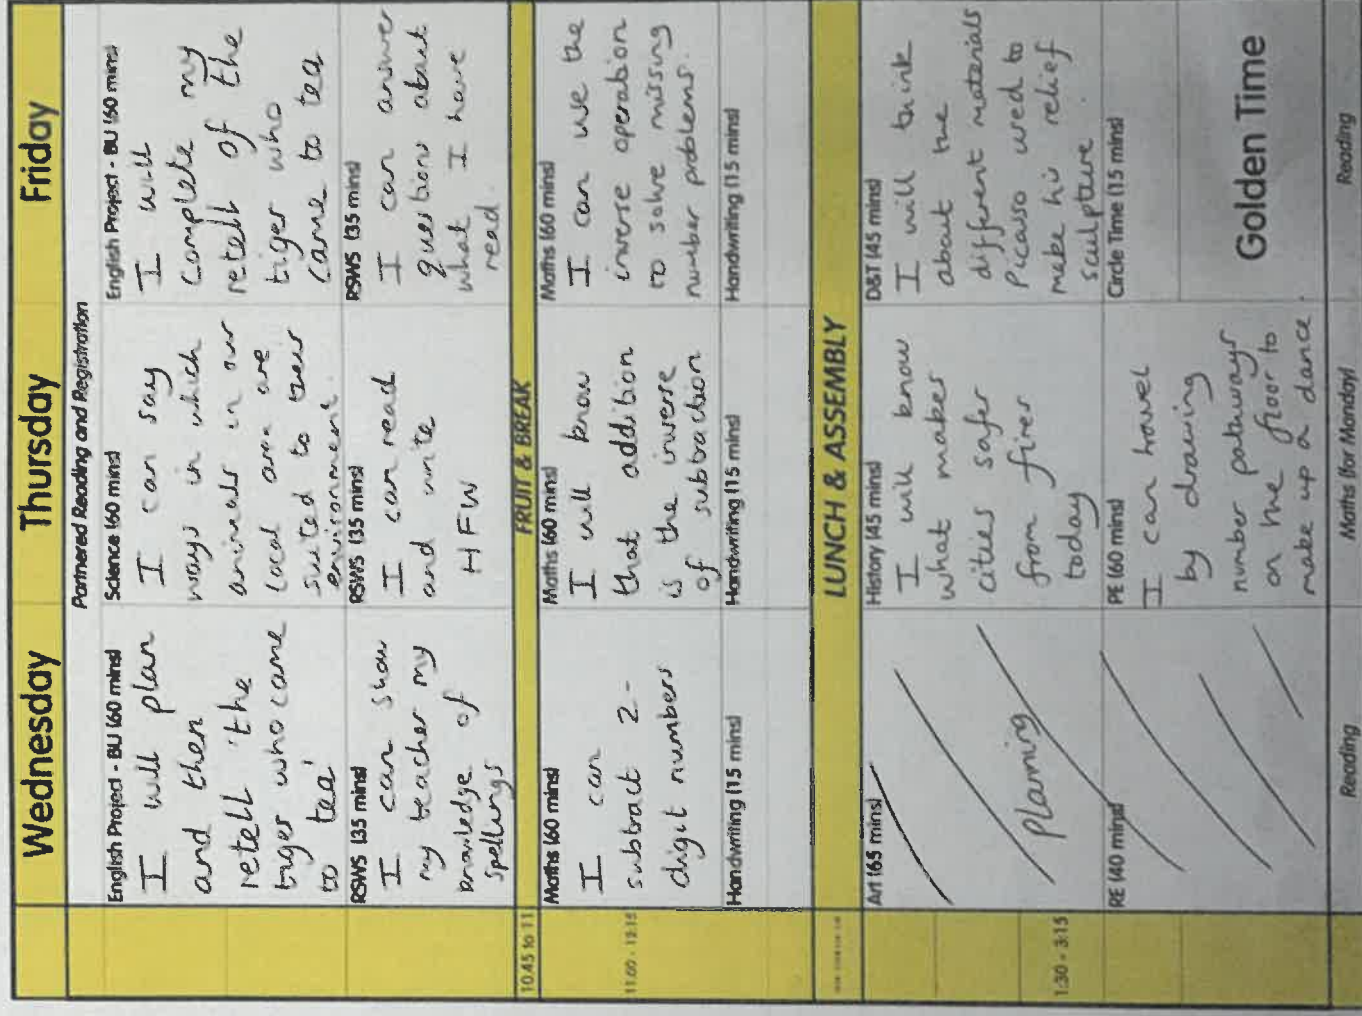 Wednesday
Thursday
Friday
Partnered Reading and Registration
English Project - BU (60 mins)
I will plan
and then
retell 'the
tiger who came
to tea'
Science (60 mins)
I can say
ways in which
animals in our
local area are
suited to their
environment.
English Project - BU (60 mins)
I will
complete my
retell of the
tiger who
came to tea
RSWS (35 mins)
I can show
my teacher my
knowledge of
spellings
RSWS (35 mins)
I can read
and write
HFW
RSWS (35 mins)
I can answer
questions about
what I have
read.
10.45 to 11
FRUIT & BREAK
11:00 - 12:15
Maths (60 mins)
I can
subtract 2-
digit numbers
Maths (60 mins)
I will know
that addition
is the inverse
of subtraction
Maths (60 mins)
I can use the
inverse operation
to solve missing
number problems.
Handwriting (15 mins)
Handwriting (15 mins)
Handwriting (15 mins)
LUNCH & ASSEMBLY
1:30 - 3:15
Art (65 mins)
Planning
RE (40 mins)
History (45 mins)
I will know
what makes
cities safer
from fires
today
PE (60 mins)
I can travel
by drawing
number pathways
on the floor to
make up a dance.
D&T (45 mins)
I will think
about the
different materials
Picasso used to
make his relief
sculpture
Circle Time (15 mins)
Golden Time
Reading
Maths (for Monday)
Reading